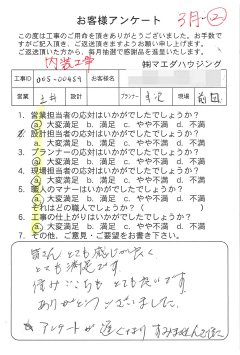 お客様アンケート 3月-②
この度は工事のご用命を頂きありがとうございました。お手数で
すがご記入頂き、ご返送頂きますようお願い申し上げます。
ご返送頂いた方から、毎月抽選で感謝品を進呈いたします。
内装工事
㈱マエダハウジング
工事ID 005-00459 お客様名
営業 設計 プランナー 現場 前田
1. 営業担当者の応対はいかがでしたでしょうか?
a. 大変満足 b. 満足 c. やや不満 d. 不満
2. 設計担当者の応対はいかがでしたでしょうか?
a. 大変満足 b. 満足 c. やや不満 d. 不満
3. プランナーの応対はいかがでしたでしょうか?
a. 大変満足 b. 満足 c. やや不満 d. 不満
4. 現場担当者の応対はいかがでしたでしょうか?
a. 大変満足 b. 満足 c. やや不満 d. 不満
5. 職人のマナーはいかがでしたでしょうか?
a. 大変満足 b. 満足 c. やや不満 d. 不満
それはどの職人でしょうか?( )
6. 工事の仕上がりはいかがでしたでしょうか?
a. 大変満足 b. 満足 c. やや不満 d. 不満
7. その他、ご意見・ご要望をお書き下さい。
皆さん とても感じが良く
とても満足です
ありがとうございました。
アンケートが遅くなり すみませんでした